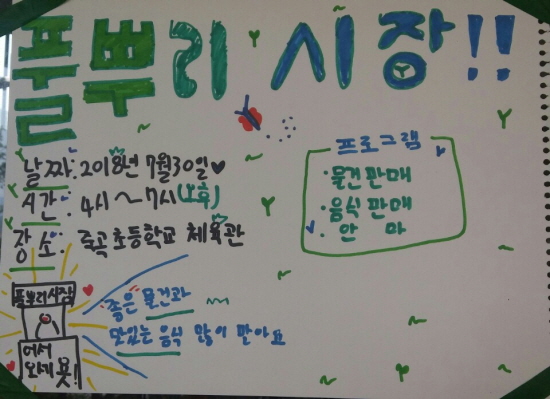 풀뿌리 시장!!
날짜: 2018년 7월 30일♥
시간: 4시~7시(오후)
장소: 죽곡초등학교 체육관
프로그램
·물건판매
·음식판매
·안 마
좋은 물건과
맛있는 음식 많이 많아요
풀뿌리시장
어서
오세욧!